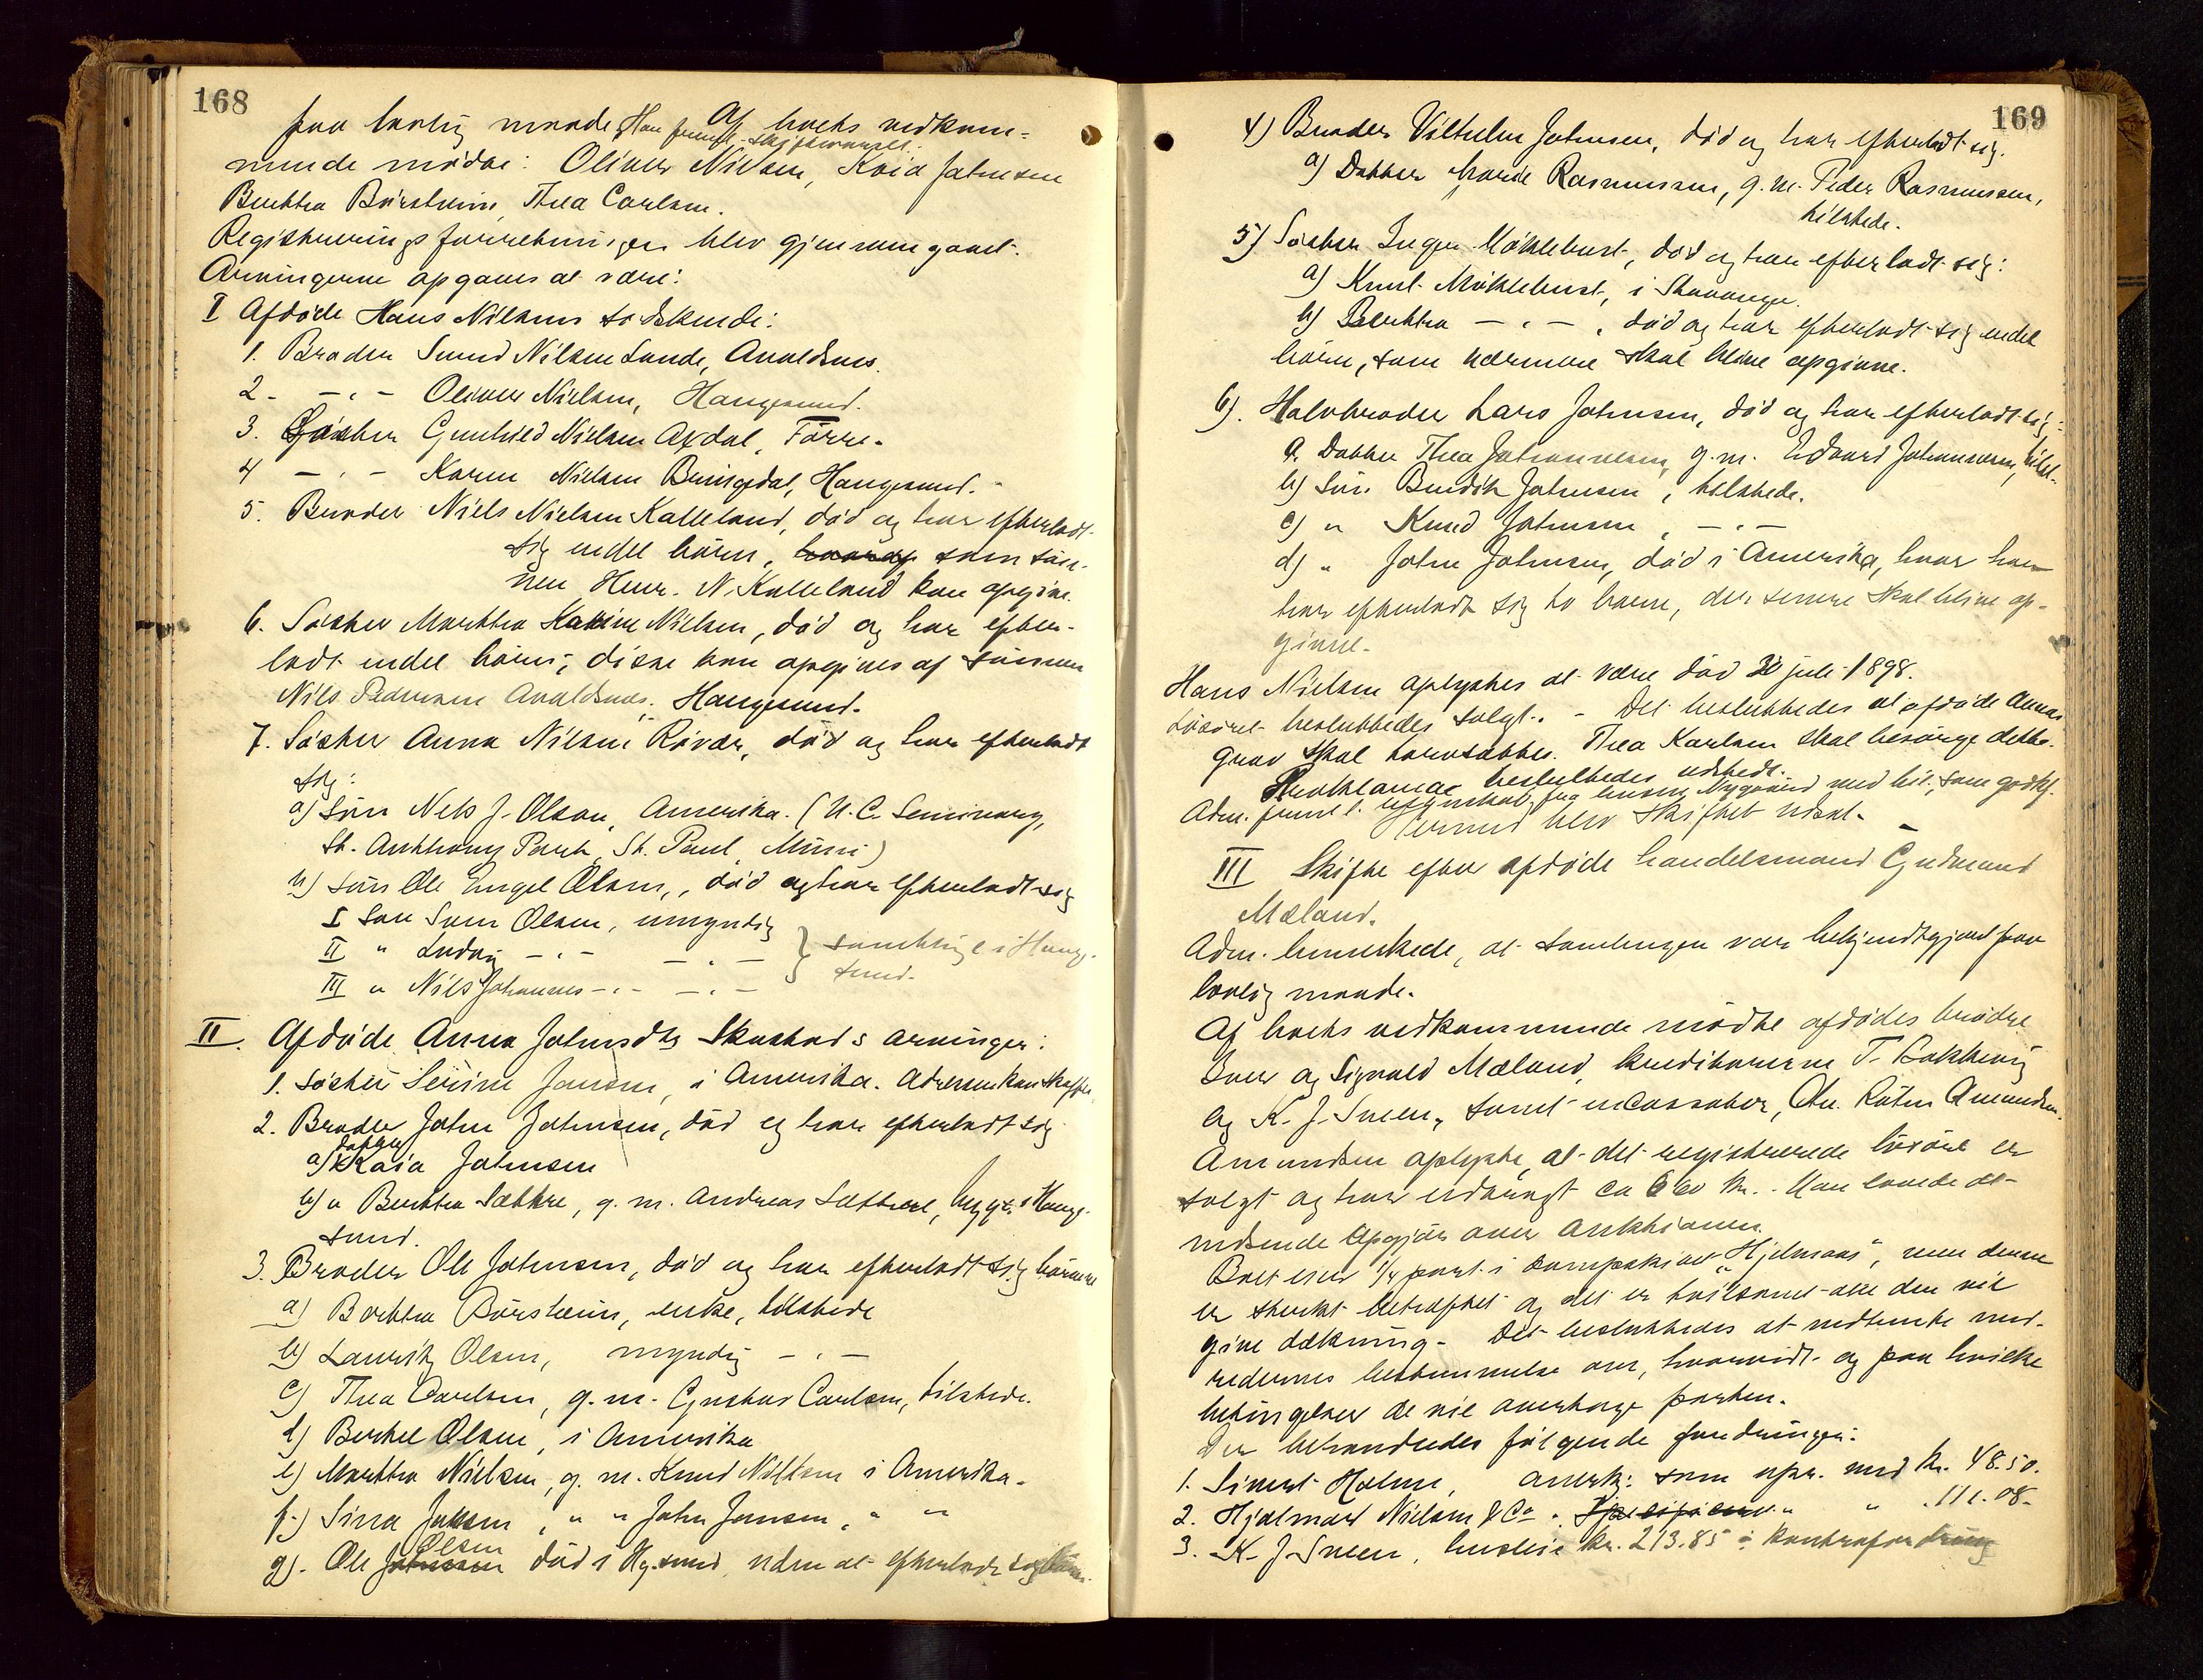 168
paa lovlig maade. Han freml. skifteraadet. Af boets vedkom-
mende mødte: Oliver Nielsen, Kaia Johnsen
Berthea Børsheim, Thea Carlsen.
Registreringsforretningen blev gjennemgaaet.
Arvingerne opgaves at være:
I Afdøde Hans Nilsens sødskende:
1. Broder Svend Nilsen Lunde, Avaldsnes.
2. - " - Oliver Nielsen, Haugesund.
3. Søster Gunhild Nielsen Axdal, Førre.
4 - " - Karen Nielsen Bringedal, Haugesund.
5. Broder Niels Nielsen Kalleland, død og har efterladt
sig endel børn, hvoraf som søn-
nen Henr. N. Kalleland kan opgive.
6. Søster Marthea Katrine Nielsen, død og har efter-
ladt endel børn; disse kan opgives af sønnen
Nils Pedersen Avaldsnes. Haugesund.
7. Søster Anna Nilsen Røvær, død og har efterladt
sig:
a) Søn Nels J. Olson, Amerika. (U. C. Seminary,
St. Anthony Park, St. Paul, Minn)
b) Søn Ole Engel Olsen, død og har efterladt sig
I Søn Sven Olsen, umyndig
II " Ludvig - " - - " - } samtlige i Hauge-
III " Nils Johannes - " - - " - sund.
II. Afdøde Anna Johnsdtr Skaatads arvinger:
1. Søster Serine Jensen, i Amerika. Adressen kan skaffes
2. Broder John Johnsen, død og har efterladt sig
datter
a) Kaia Johnsen
b) " Berthea Sæbtre, g. m. Andreas Sæbtree, bygger. Hauge-
sund.
3. Broder Ole Johnsen, død og har efterladt sig børnene
a) Berthea Børsheim, enke, tilstede
b) Lauritz Olsen, myndig - " -
c) Thea Carlsen, g. m. Gustav Carlsen, tilstede.
d) Berthel Olsen, i Amerika
e) Marthea Nielsen, g. m. Knud Nilsen i Amerika.
f.) Sina Jansen, " " John Jansen, " "
Olsen
g). Ole Johnsen død i Hg.sund, uden at efterlade sig børn.
169
4) Broder Vilhelm Johnsen, død og har efterladt sig.
a) Datter Marie Rasmussen, g. m. Peder Rasmussen,
tilstede.
5) Søster Inger Møklebust, død og har efterladt sig:
a) Knut Møklebust, i Stavanger.
b) Berthea - " - , død og har efterladt sig endel
børn, som nærmere skal blive opgivne.
6). Halvbroder Lars Johnsen, død og har efterladt sig:
a. Datter Thea Johannesen, g. m. Edvard Johannesen, tilst.
b) Søn Bendik Johnsen, tilstede.
c) " Knud Johnsen, - " -
d) " John Johnsen, død i Amerika, hvor han
har efterladt sig to børn, der senere skal blive op-
givne.
Hans Nielsen oplystes at være død 20 juli 1898.
Løsøret besluttedes solgt. - Det besluttedes at afdøde Annas
grav skal istandsættes. Thea Karlsen skal besørge dette.
Proklama besluttedes udstedt.
Adm. freml. regnskab fra lensm. Nygaard med bil., som godkj.
Hermed blev skiftet udsat.
III Skifte efter afdøde handelsmand Gudmund
Mæland.
Adm. bemerkede, at samlingen var bekjendtgjort paa
lovlig maade.
Af boets vedkommende mødte afdødes brødre
Iver og Sigvald Mæland, kreditorerne T. Bakkevig
og K. J. Sneen, samt incassator, Chr. Røtne Amundsen.
Amundsen oplyste, at det registrerede løsøre er
solgt og har udbragt ca 600 kr. Han lovede at
indsende opgjør over auktionen.
Boet eier 1/4 part i dampskibet "Hjelmaas", men denne
er sterkt beheftet og det er tvilsomt om den vil
give dækning. Det besluttedes at indhente med-
redernes bestemmelse om, hvorvidt og paa hvilke
betingelser de vil overtage parten.
Der behandledes følgende fordringer:
1. Sivert Holme, anerkj. som upr. med kr. 48.50.
2. Hjalmar Nielsen & Co " " " 111.08.
3. K. J. Sneen, husleie kr. 213.85 ÷ kontrafordring